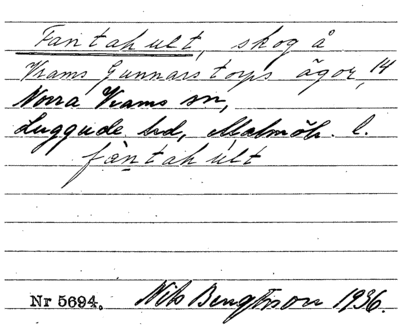 Fantahult, skog å
Vrams Gunnarstorps ägor, 14
Norra Vrams sn,
Luggude hd, Malmöh. l.
fàntahult
Nr 5694. Nils Bengtsson 1936.